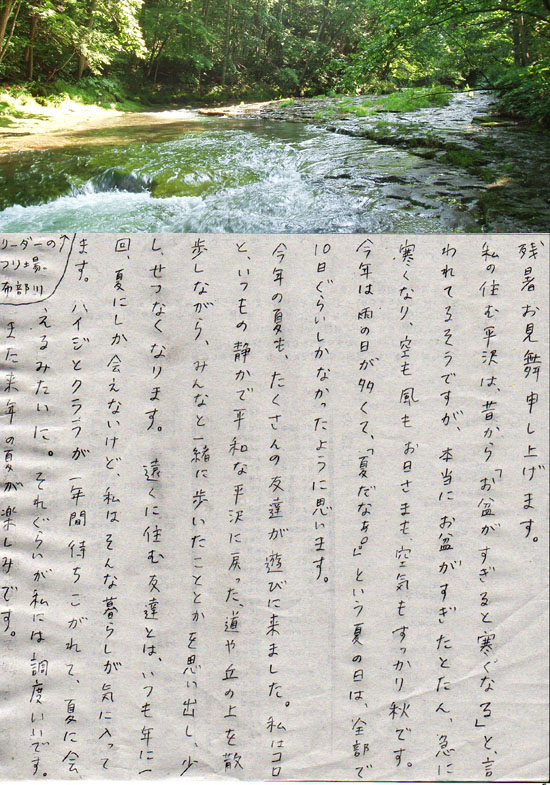 残暑お見舞申し上げます。
私の住む平沢は、昔から「お盆がすぎると寒くなる」と、言
われてるそうですが、本当にお盆がすぎたとたん、急に
寒くなり、空も風もお日さまも、空気もすっかり秋です。
今年は雨の日が多くて、「夏だなぁ。」という夏の日は、全部で
10日ぐらいしかなかったように思います。
今年の夏も、たくさんの友達が遊びに来ました。私はコロ
と、いつもの静かで平和な平沢に戻った、道や丘の上を散
歩しながら、みんなと一緒に歩いたこととかを思い出し、少
し、せつなくなります。 遠くに住む友達とは、いつも年に一
回、夏にしか会えないけど、私はそんな暮らしが気に入って
ます。 ハイジとクララが一年間待ちこがれて、夏に会
えるみたいに。それぐらいが私には調度いいです。
また来年の夏が楽しみです。
リーダーの
つり場
布部川